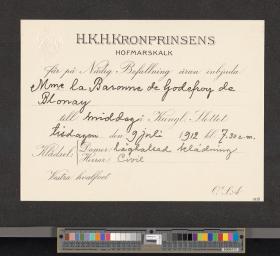 H.K.H. KRONPRINSENS
HOFMARSKALK
får på Nådig Befallning äran inbjuda
Mme la Baronne de Godefroy de
Blonay
till middag å Kungl. Slottet
tisdagen den 9 Juli 1912 kl 7.30 e.m.
Klädsel: Damer: klädning
Herrar: Civil
Vestra hvalfvet
O.S.A.